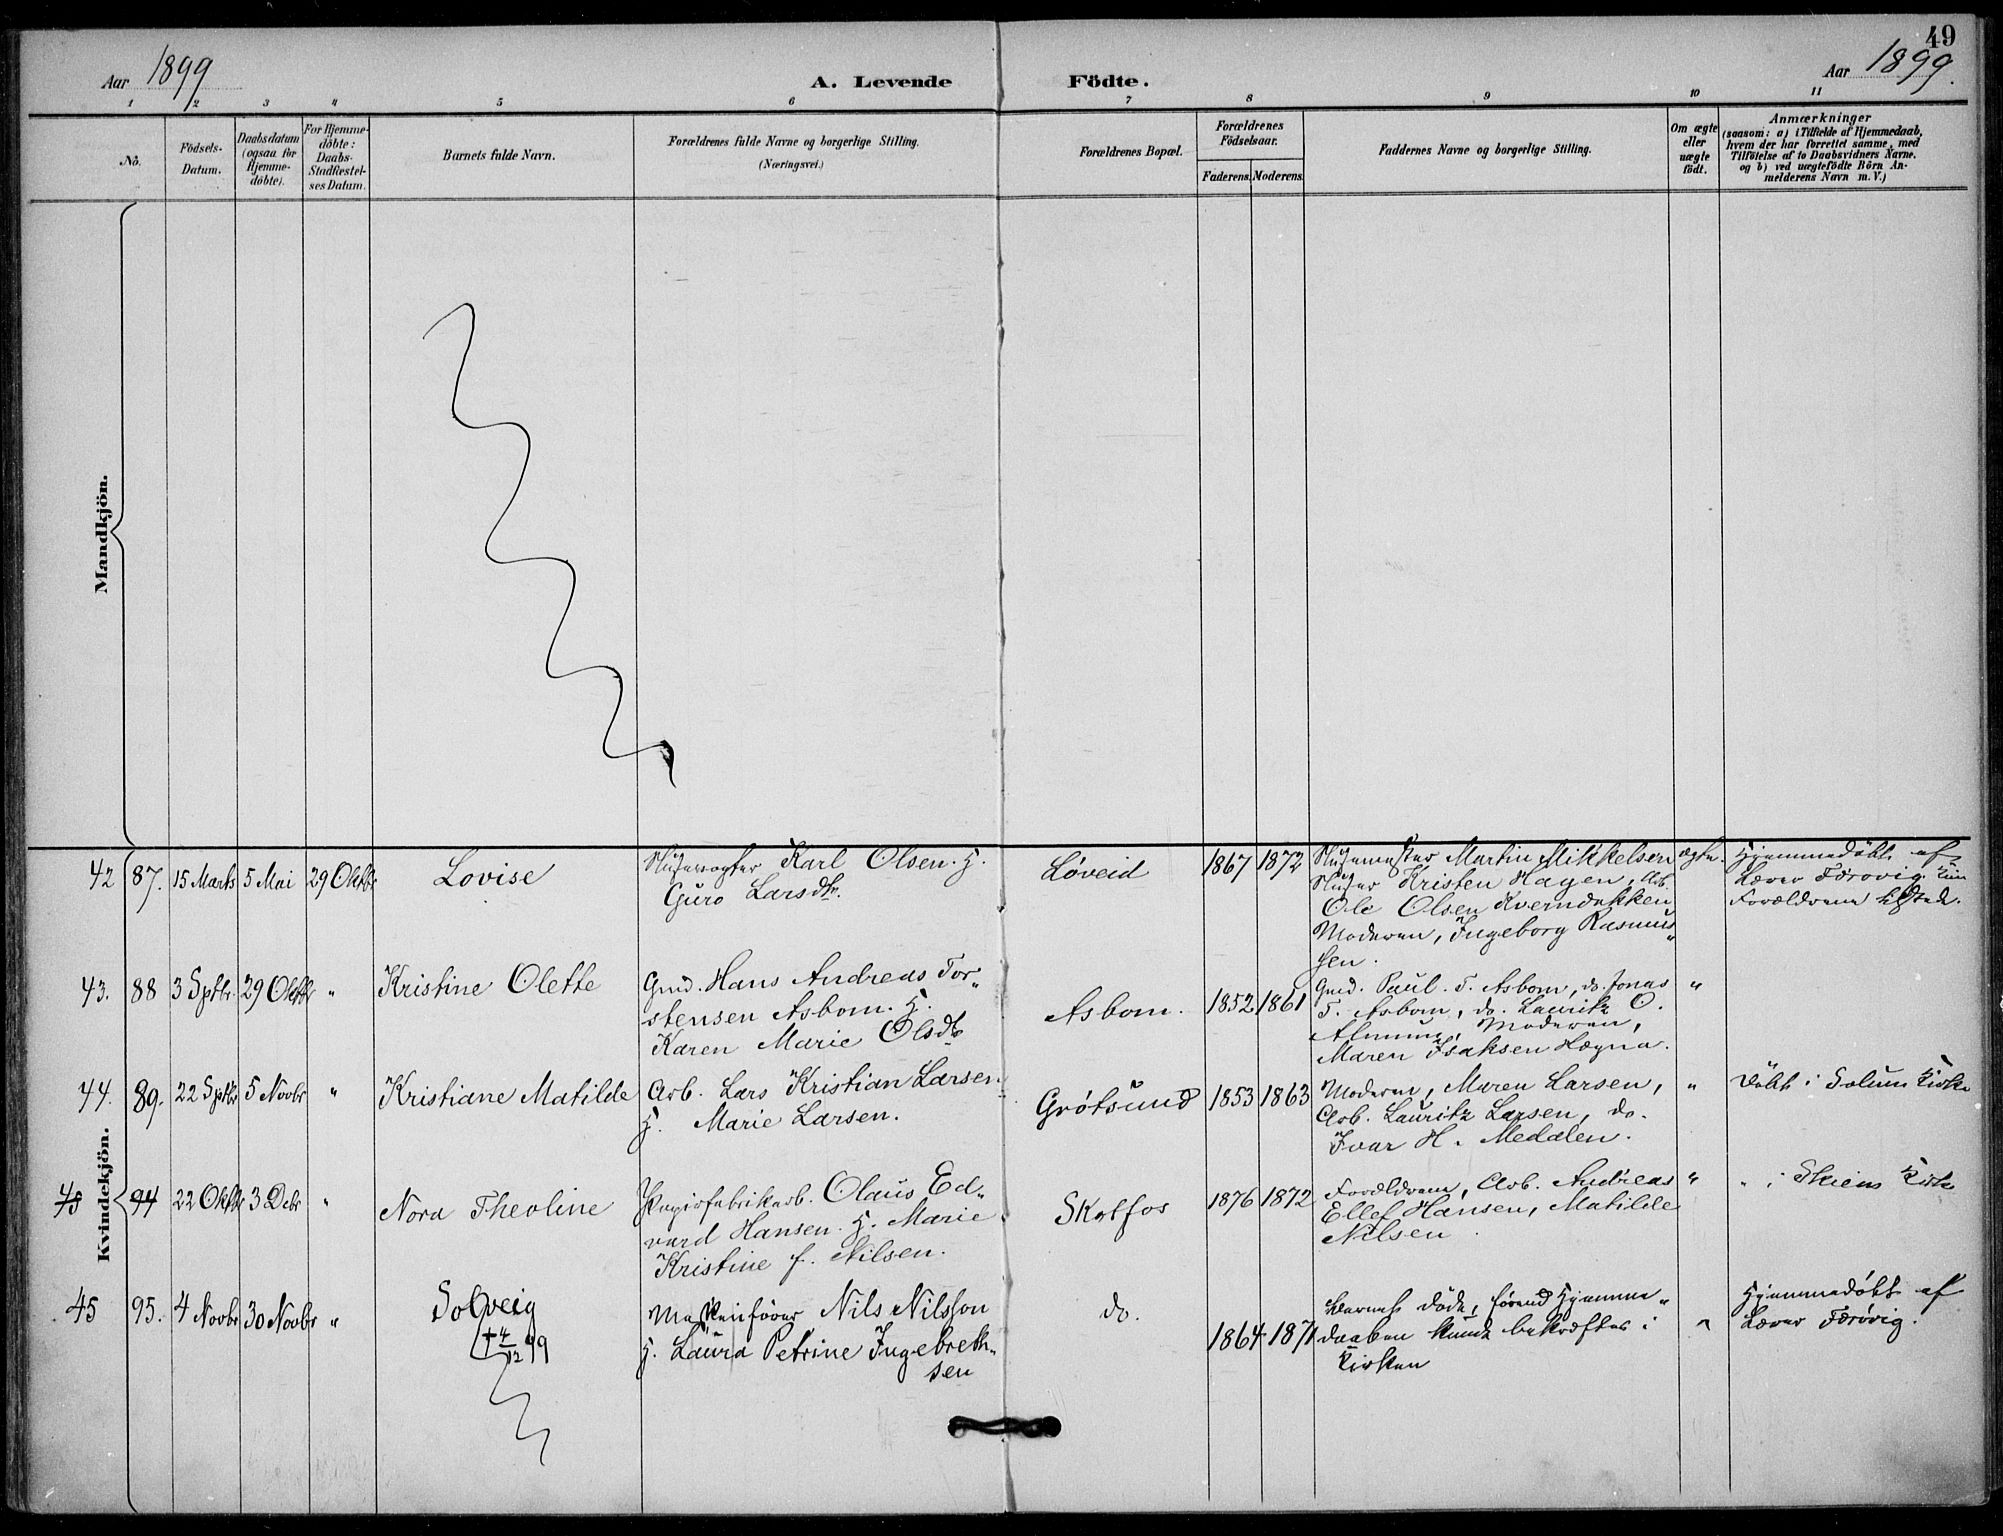 49
Aar 1899
A. Levende Födte.
Aar 1899.
1 2 3 4 5 6 7 8 9 10 11
No.
Födsels-
Datum.
Daabsdatum
(ogsaa for
Hjemme-
döbte).
For Hjemme-
döbte:
Daabs-
Stadfæstel-
ses Datum.
Barnets fulde Navn.
Forældrenes fulde Navne og borgerlige Stilling.
(Næringsvei.)
Forældrenes Bopæl.
Forældrenes
Födselsaar.
Faderens. Moderens.
Faddernes Navne og borgerlige Stilling.
Om ægte
eller
uægte
födt.
Anmærkninger
(saasom: a) i Tilfælde af Hjemmedaab,
hvem der har forrettet samme, med
Tilföielse af to Daabsvidners Navne.
og b) ved uægtefödte Börn An-
melderens Navn m. V.)
Mandkjön.
Kvindekjön.
42 87. 15 Marts 5 Mai 29 Oktbr
Lovise
Slusevogter Karl Olsen. H.
Guro Larsdtr.
Løveid
1867 1872
Slusemester Martin Mikkelsen
Sluser Kristen Hagen, Arb.
Ole Olsen Kverndokken
Moderen, Ingeborg Rasmus„
sen.
ægte.
Hjemmedøbt af
Lærer Færøvig.
Forældrene tilstede.
43. 88 3 Sptbr. 29 Oktbr "
Kristine Olette
Gmd. Hans Andreas Tor„
stensen Asbom. H.
Karen Marie Olsdtr
Asbom.
1852 1861
Gmd. Paul T. Asbom, do. Jonas
T. Asbom, do. Lauritz O.
Moderen,
Maren Isaksen Hægna.
"
44. 89. 22 Sptbr 5 Novbr "
Kristiane Matilde
Arb. Lars Kristian Larsen
H. Marie Larsen.
Grøtsund
1853 1863
Moderen, Maren Larsen,
Arb. Lauritz Larsen, do.
Ivar H. Medalen.
"
Døbt i Solum Kirke
45 94 22 Oktbr 3 Debr "
Nora Theoline
Papirfabrikarb. Olaus Ed„
vard Hansen. H. Marie
Kristine f. Nilsen.
Skotfos
1876 1872
Forældrene, Arb. Andreas
Ellef Hansen, Matilde
Nilsen
"
" i Skiens Kirke
45 95. 4 Novbr 30 Novbr "
Solveig
(† 4/12 99
Maskinfører Nils Nilsson
H. Laura Petrine Ingebreth„
sen
do.
1864 1871
Barnet døde, førend Hjemme„
daaben kunde bekræftes i
Kirken
"
Hjemmedøbt af
Lærer Færøvig.